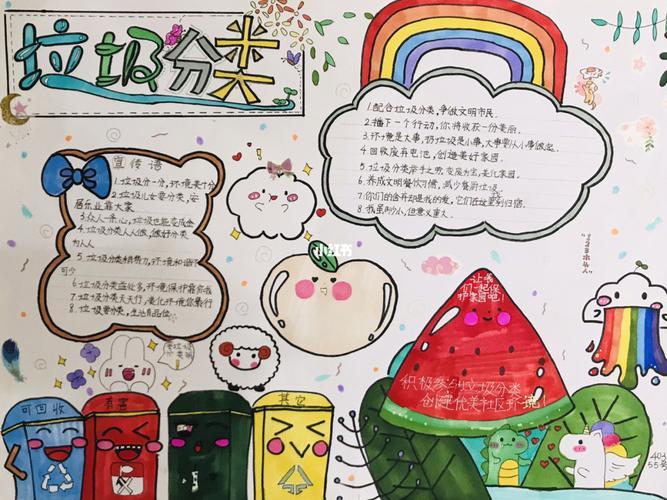 垃圾分类
宣传语
1.垃圾分一分,环境美十分
2.垃圾儿女要分类,安
居乐业靠大家
3.众人一条心,垃圾也能变成金
4.垃圾分类人人做,做好分类
为人人
5.垃圾分类
可少
6.垃圾分类益处多,环境保护靠你我
7.垃圾分类天天行,美化环境你最行
8.垃圾要分类,生活有品位
1.配合垃圾分类,争做文明市民。
2.播下一个行动,你将收获一份美丽。
3.环境是大事,扔垃圾是小事,大事要从小事做起。
4.回收废弃电池,创造美好家园。
5.垃圾分类举手之劳,变废为宝,美化家园。
6.养成文明餐饮习惯,减少餐厨垃圾。
7.你们的合开却是我的爱,它们在这里到归宿。
8.我虽则小,但意义重大。
小红书
让我
们一起保
护家园吧!
积极参与垃圾分类
创建优美社区环境!
可回收
有害
其它
55号